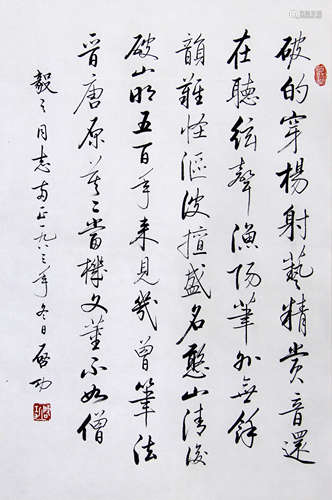 破的穿楊射藝精賞音還
在聽絃聲漁陽筆外無餘
韻難怪漚波擅盛名憨山清後
破山明五百年來見幾曾筆法
晉唐原莫二當機文董不如僧
毅之同志正一九八三年冬日啟功